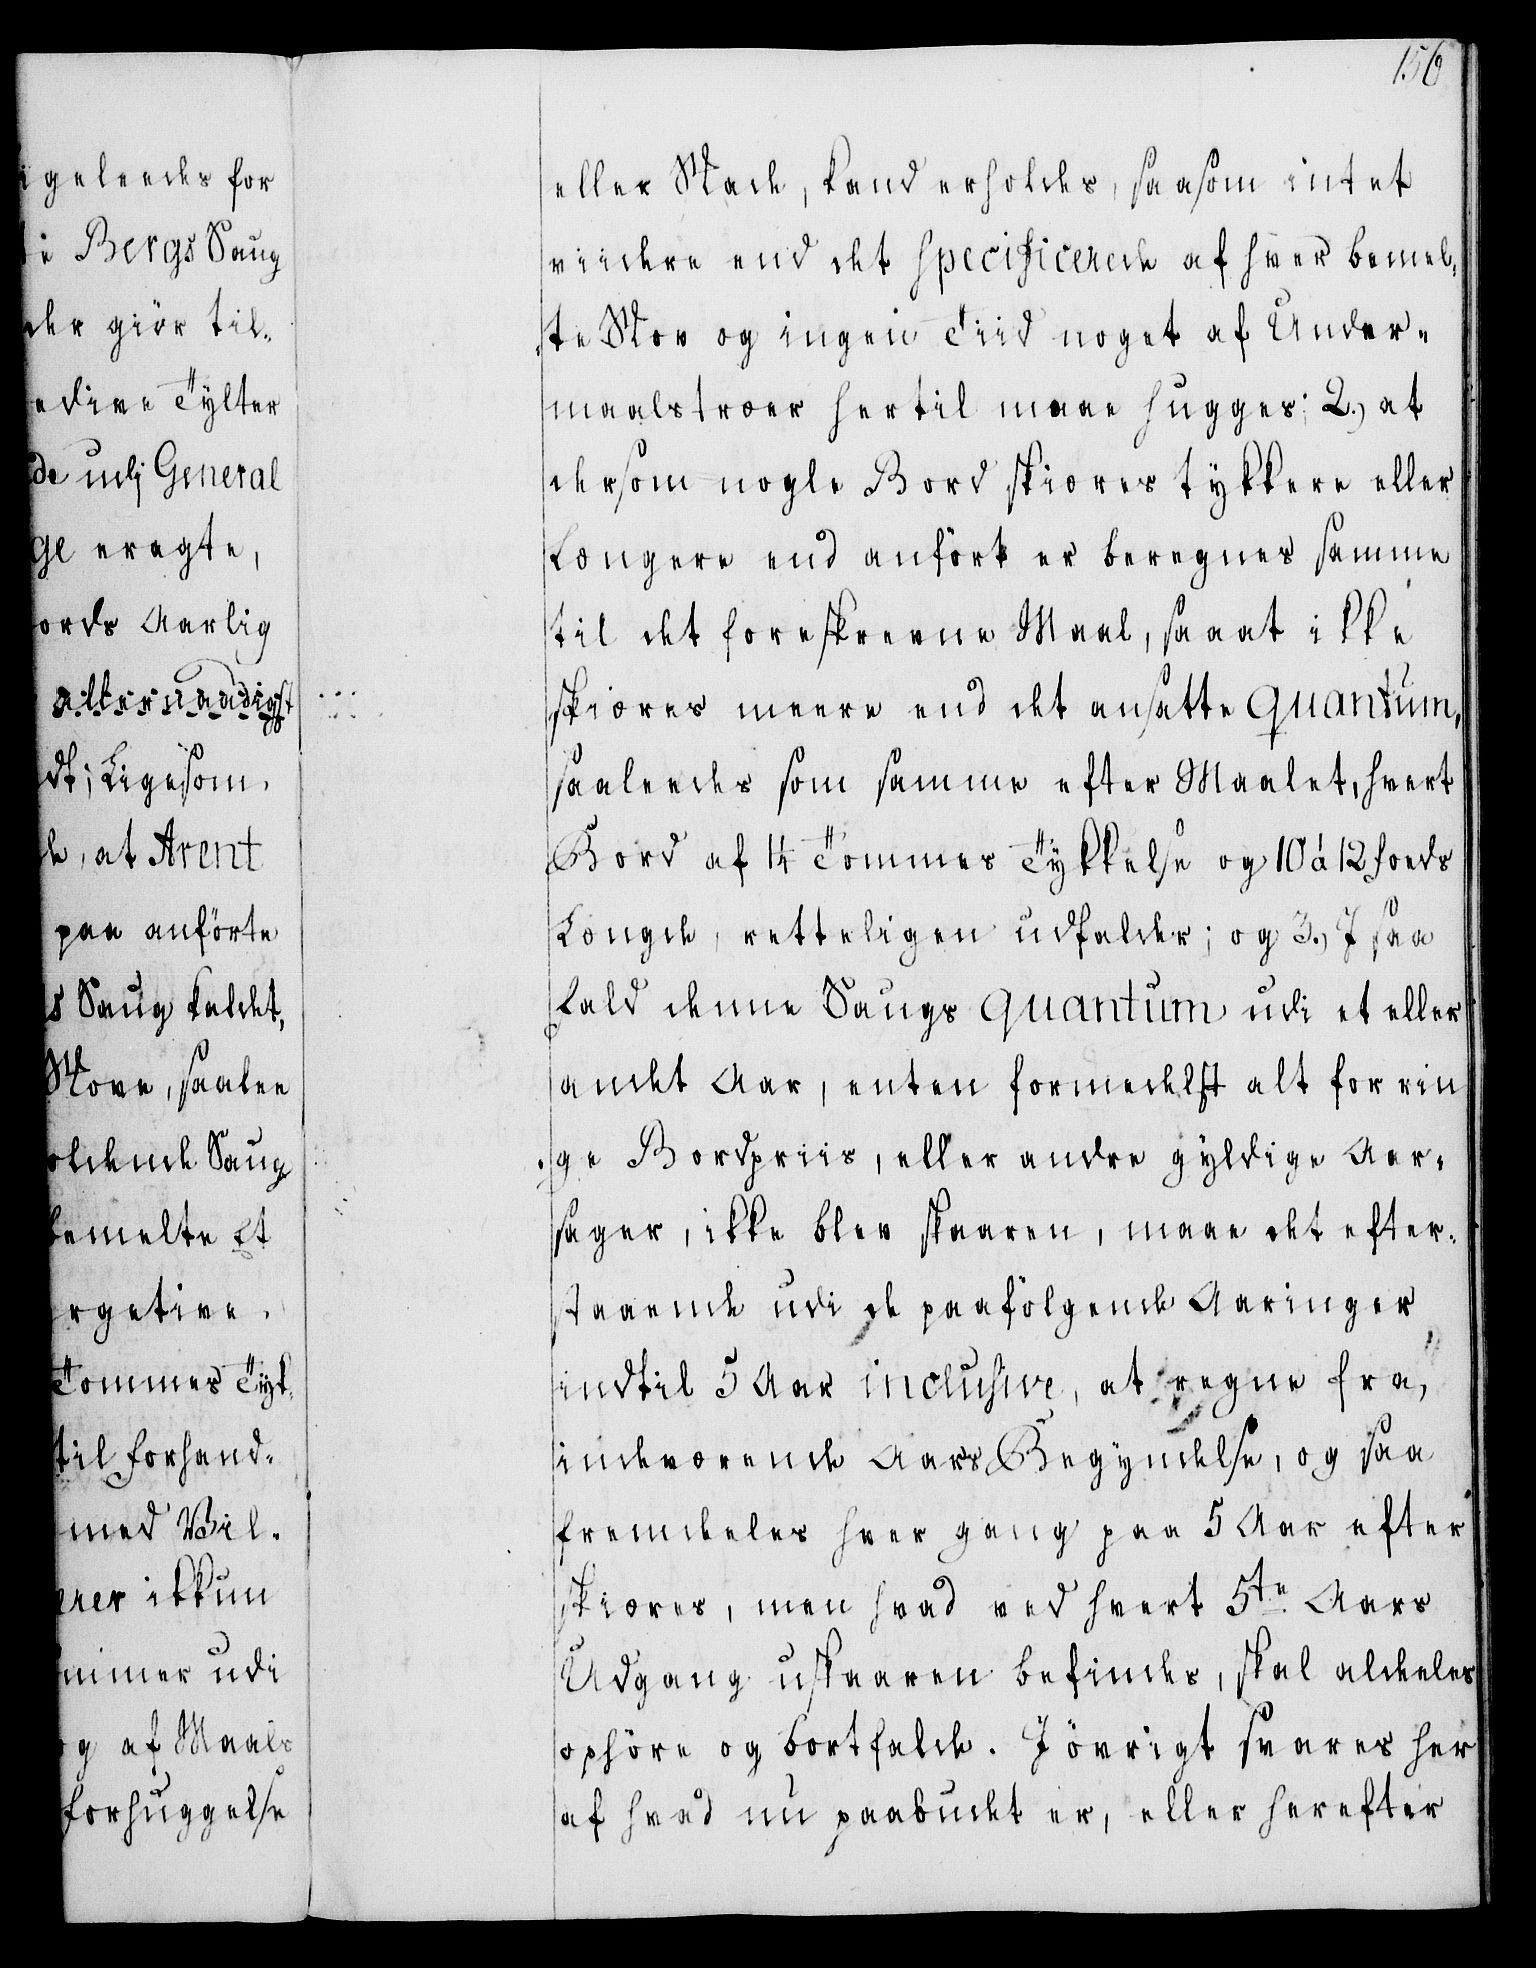 igeleedes for
de Bergs Saug
der giör til-
edive Tylter
de udj General
ge eragte,
ords Aarlig
allernaadigst
dt; Ligesom
de, at Arent
paa anförte
s Saug kaldet,
Skove, saalee
oldende Saug
bemelte Et
Tommes Tyk-
til forhand-
med Vil-
erer ikkun
immer udi
og af Maals
forhuggelse
156
eller Skade, kand erholdes, saasom intet
viidere end det specificerede af hver bemel-
te Skov og ingen Tiid noget af Under-
maalstræer hertil maae hugges; 2.) at
dersom nogle Bord skiæres tykkere eller
Længere end anfört er beregnes samme
til det foreskrevne Maal, saaat ikke
skiæres meere end det ansatte quantum,
saaleedes som samme efter Maalet, hvert
Bord af 1¼ Tommes Tykkelse og 10 á 12 foeds
Længde, retteligen udfalder; og 3.) I saa
fald denne Saugs quantum udi et eller
andet Aar, enten formedelst alt for rin
ge Bordpriis, eller andre gyldige Aar-
sager, ikke blev skaaren, maae det efter-
staaende udi de paafölgende Aaringer
indtil 5 Aar inclusive, at regne fra,
indeværende Aars Begyndelse, og saa
fremdeeles hver gang paa 5 Aar efter
skiæres, men hvad ved hvert 5te Aars
Udgang uskaaren befindes, skal aldeeles
ophöre og bortfalde. I övrigt svares her
af hvad nu paabudet er, eller herefter